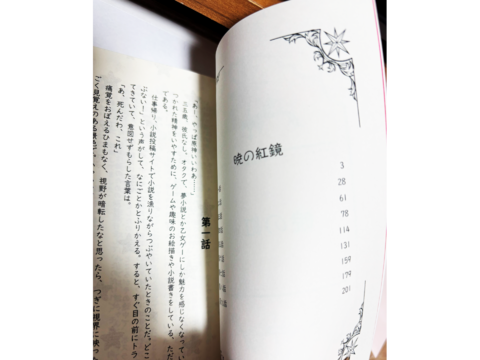 暁の紅鏡
3
28
61
78
114
131
159
179
201
第一話
「あー、やっぱ原神いいわぁ……」
三五歳、彼氏なし、オタクで、夢小説とか乙女ゲーにしか魅力を感じなくなってい
つかれた精神をいやすために、ゲームや趣味のお絵描きや小説書きをしている、ただ
である。
仕事帰り、小説投稿サイトで小説を漁りながらつぶやいていたときのことだ。どこ
ぶない！」という声がして、なにごとかとふりかえる。すると、すぐ目の前にトラ
てきていて、意図せずもらした言葉は。
「あ、死んだわ、これ」
痛覚をおぼえるひまもなく、視野が暗転したなと思ったら、つぎに視界に映っ
ごく見覚えのある景色